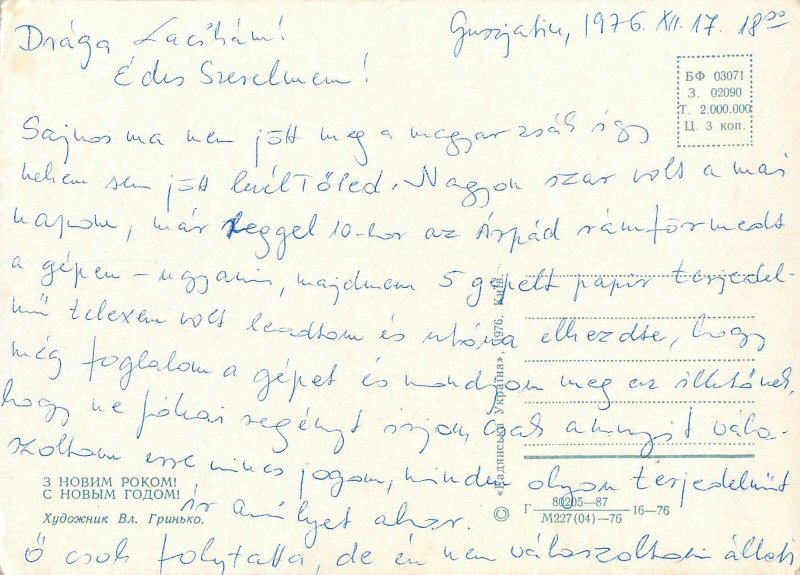 Guszjatin, 1976. XII. 17. 18⁰⁰
Drága Lacikám!
Édes Szerelmem!
БФ 03071
З. 02090
Т. 2.000.000
Ц. 3 коп.
Sajnos ma nem jött meg a magyar zsák így
nekem sem jött levél Tőled. Nagyon szar volt a mai
napom, már reggel 10-kor az Árpád rámförmedt
a gépen – ugyanis, majdnem 5 gépelt papír terjedel-
mű telexem volt leadtam és utána elkezdte, hogy
még foglalom a gépet és mondjam meg az illetőnek,
hogy ne Jókai regényt írjon, csak annyit vála-
szoltam erre nincs jogom, minden olyan terjedelműt
ír amilyet akar.
Ő csak folytatta, de én nem válaszoltam állati
З НОВИМ РОКОМ!
С НОВЫМ ГОДОМ!
Художник Вл. Гринько.
© «Радянська Україна», 1976. Київ.
Г 80205—87 16—76
М227(04)—76